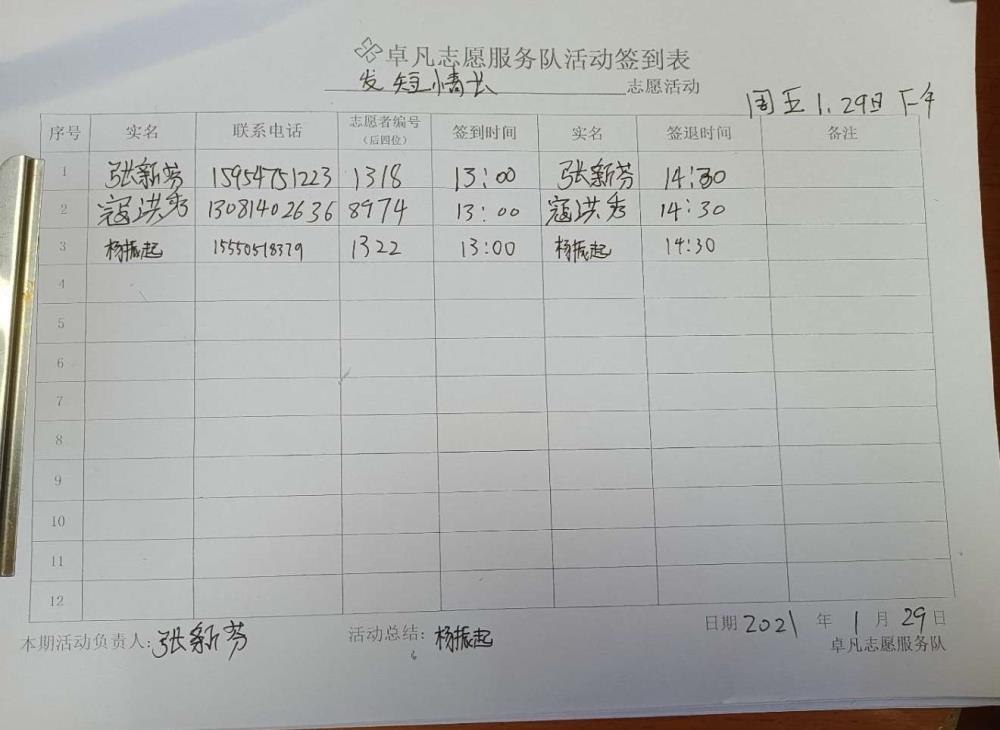 卓凡志愿服务队活动签到表
发短情长 志愿活动
周五 1.29日 下午
序号 实名 联系电话 志愿者编号(后四位) 签到时间 实名 签退时间 备注
1 张新芬 15954751223 1318 13:00 张新芬 14:30
2 寇洪秀 13081402636 8974 13:00 寇洪秀 14:30
3 杨振起 15550518379 1322 13:00 杨振起 14:30
4
5
6
7
8
9
10
11
12
本期活动负责人:张新芬 活动总结:杨振起 日期 2021 年 1 月 29 日
卓凡志愿服务队